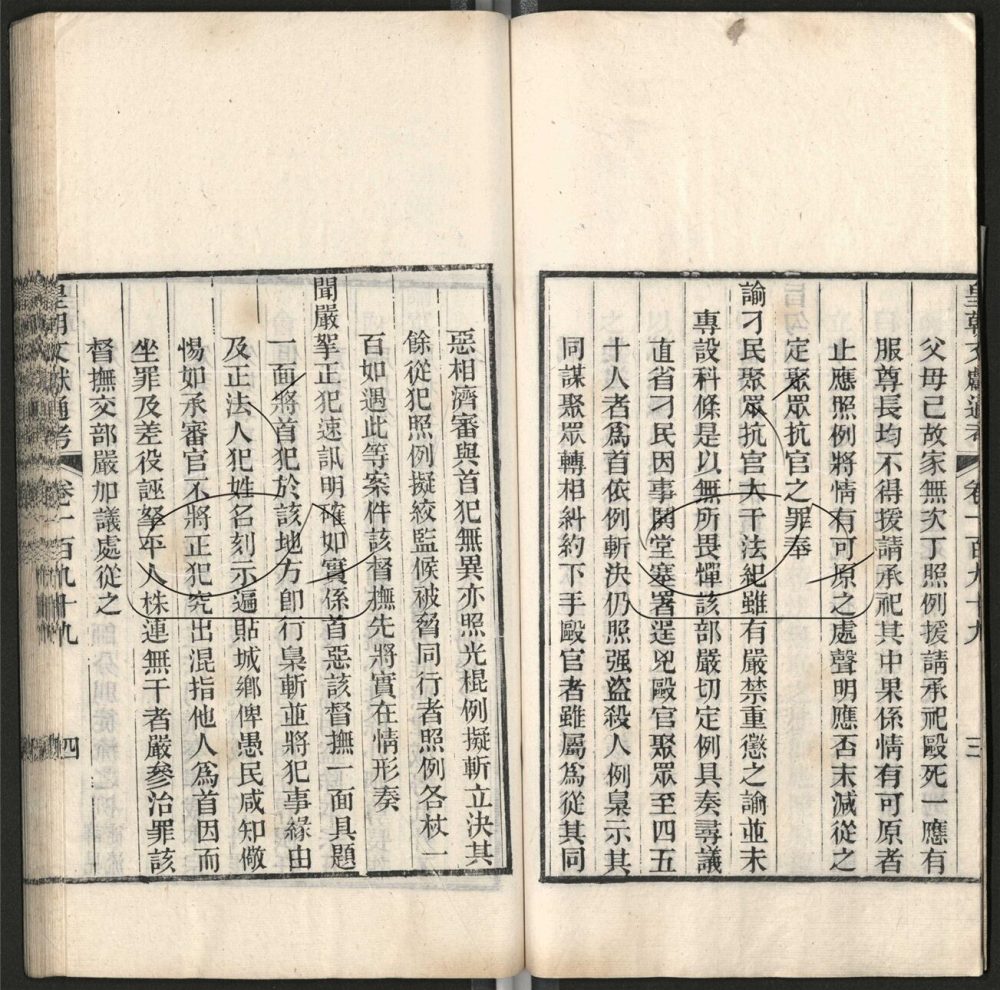 皇朝文獻通考 卷一百九十九 三
父母已故家無次丁照例援請承祀毆死一應有
服尊長均不得援請承祀其中果係情有可原者
止應照例將情有可原之處聲明應否末減從之
定聚眾抗官之罪奉
諭刁民聚眾抗官大干法紀雖有嚴禁重懲之諭並未
專設科條是以無所畏憚該部嚴切定例具奏尋議
直省刁民因事鬨堂塞署逞兇毆官聚眾至四五
十人者爲首依例斬決仍照强盜殺人例梟示其
同謀聚眾轉相糾約下手毆官者雖屬爲從其同
惡相濟審與首犯無異亦照光棍例擬斬立決其
餘從犯照例擬絞監候被脅同行者照例各杖一
百如遇此等案件該督撫先將實在情形奏
聞嚴拏正犯速訊明確如實係首惡該督撫一面具題
一面將首犯於該地方卽行梟斬並將犯事緣由
及正法人犯姓名刻示遍貼城鄉俾愚民咸知儆
惕如承審官不將正犯究出混指他人爲首因而
坐罪及差役誣拏平人株連無干者嚴參治罪該
督撫交部嚴加議處從之
皇朝文獻通考 卷一百九十九 四